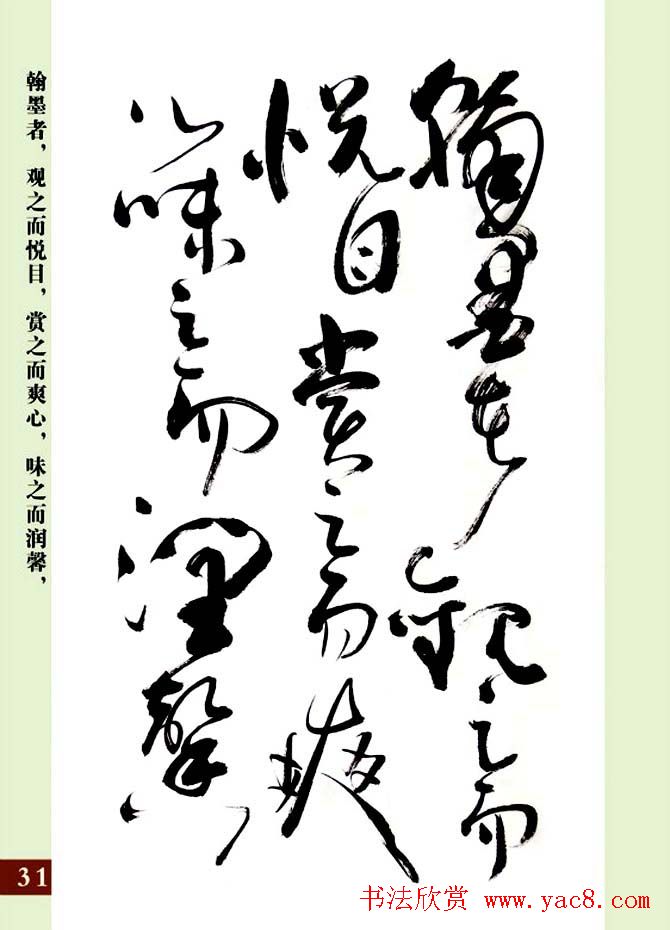 翰墨者观之而
悦目赏之而爽
心味之而润馨
翰墨者，观之而悦目，赏之而爽心，味之而润馨，
31
书法欣赏 www.yac8.com